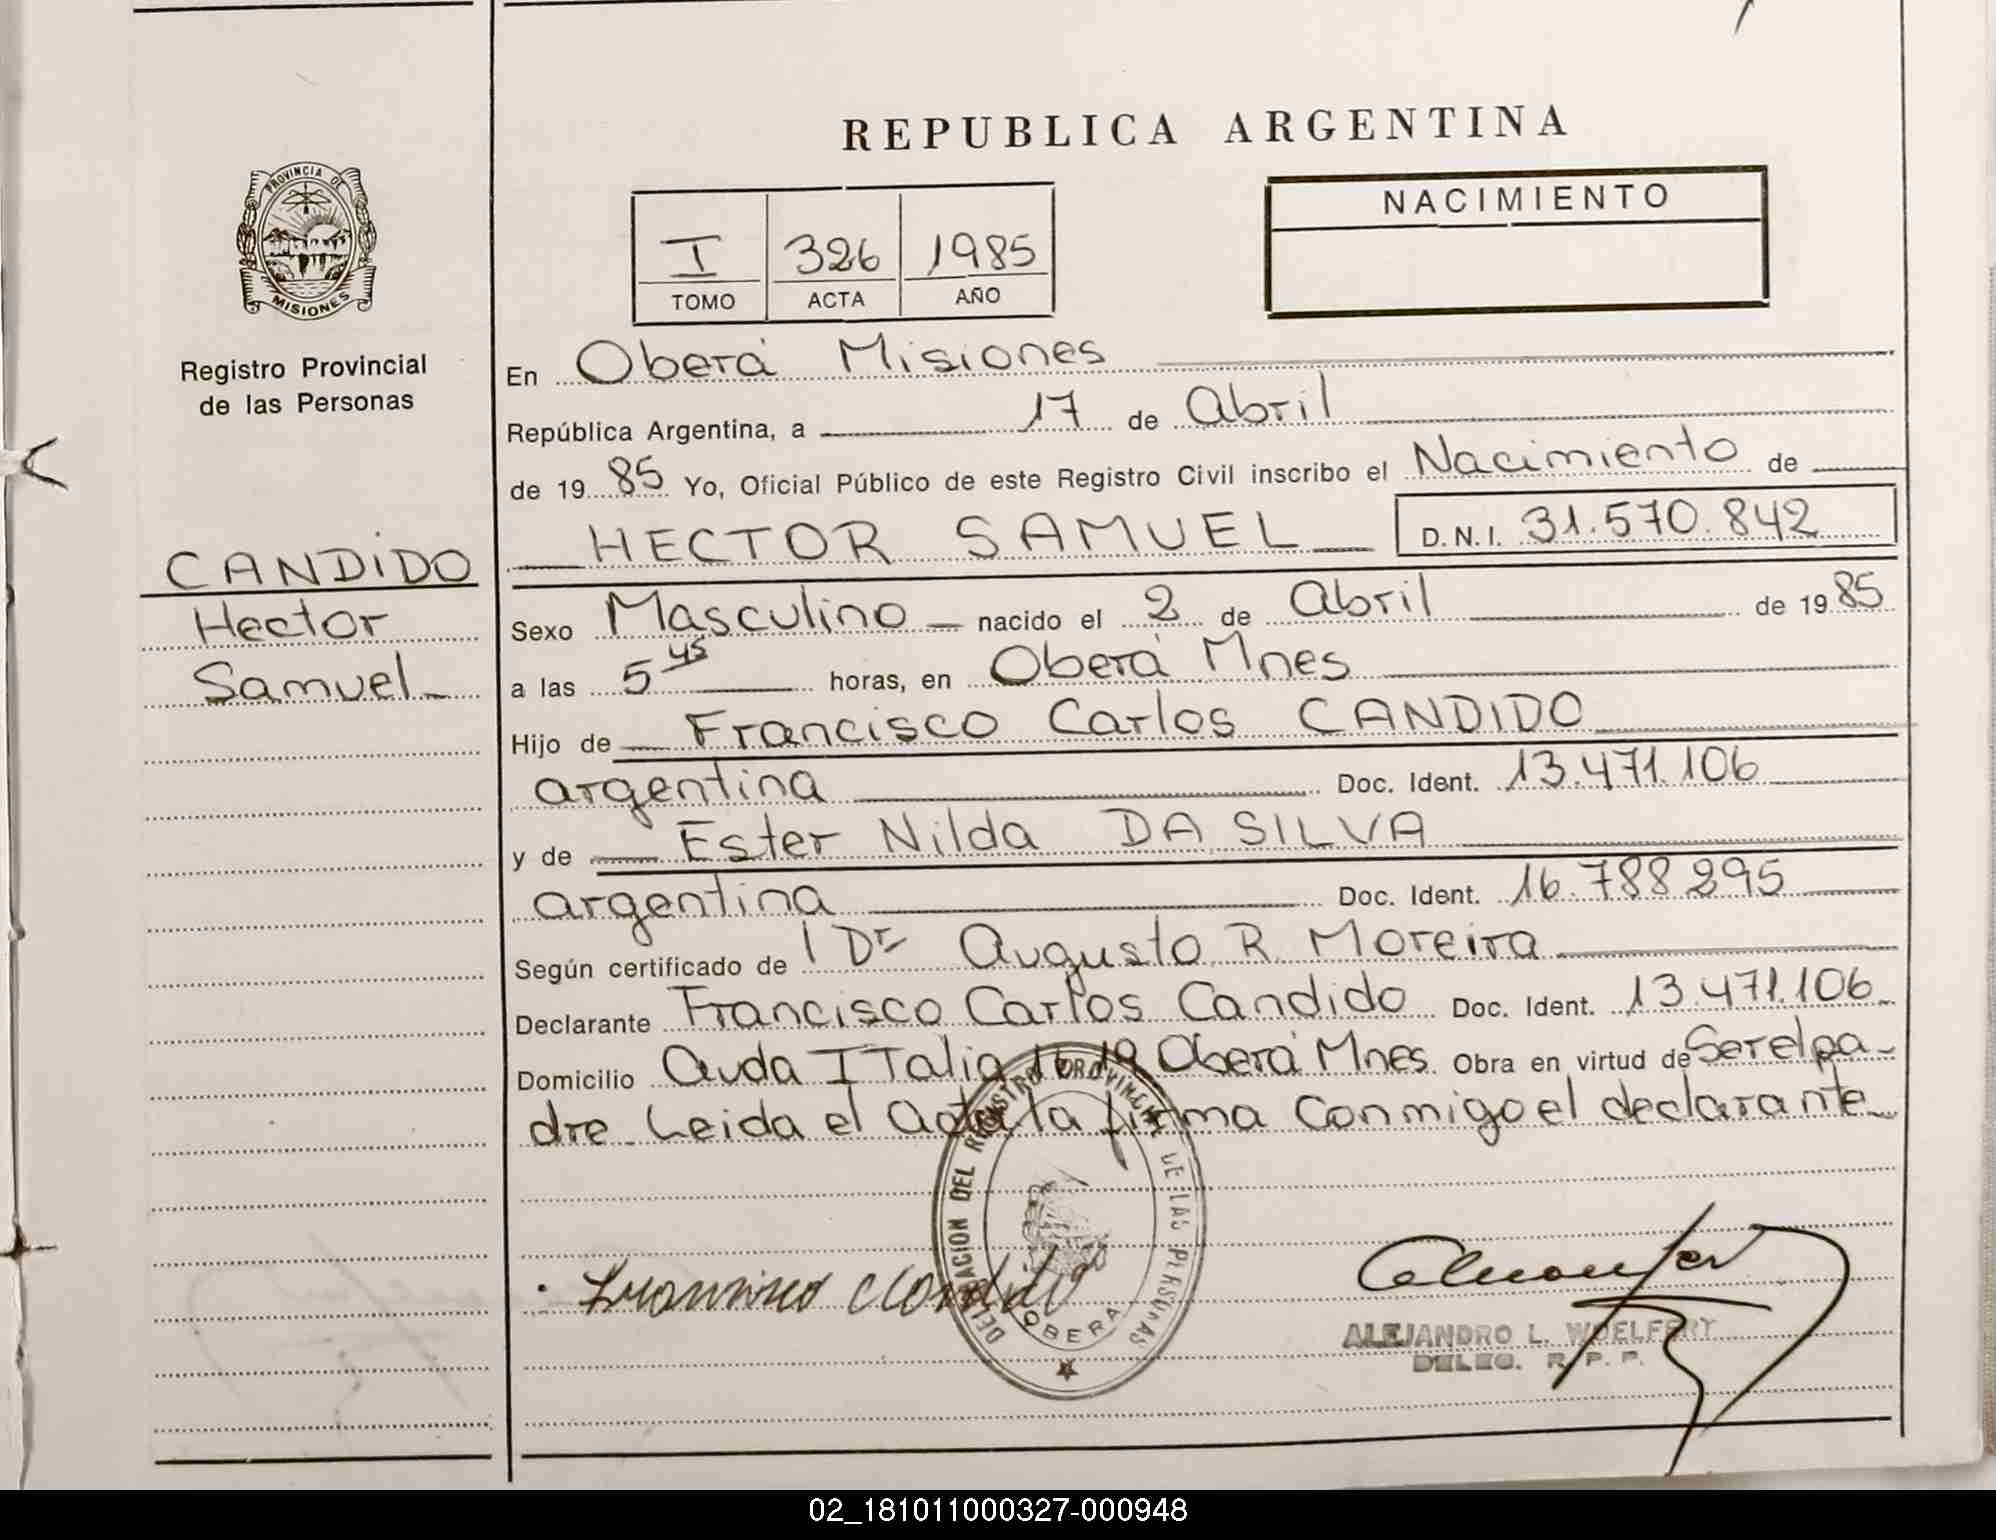 REPUBLICA ARGENTINA
PROVINCIA DE
MISIONES
Registro Provincial
de las Personas
CANDIDO
Hector
Samuel
I 326 1985
TOMO ACTA AÑO
NACIMIENTO
En Oberá Misiones
República Argentina, a 17 de Abril
de 19 85 Yo, Oficial Público de este Registro Civil inscribo el Nacimiento de
HECTOR SAMUEL D.N.I. 31.570.842
Sexo Masculino nacido el 2 de Abril de 19 85
a las 5 45 horas, en Oberá Mnes
Hijo de Francisco Carlos CANDIDO
argentina Doc. Ident. 13.471.106
y de Ester Nilda DA SILVA
argentina Doc. Ident. 16.788.295
Según certificado de Dr Augusto R Moreira
Declarante Francisco Carlos Candido Doc. Ident. 13.471.106
Domicilio Avda ITalia Oberá Mnes Obra en virtud de Ser el pa-
dre Leida el Acta la firma Conmigo el declarante
DELEGACION DEL REGISTRO PROVINCIAL DE LAS PERSONAS
OBERA
Francisco Candido
ALEJANDRO L. WOELFERT
DELEG. R. P. P.
02_181011000327-000948